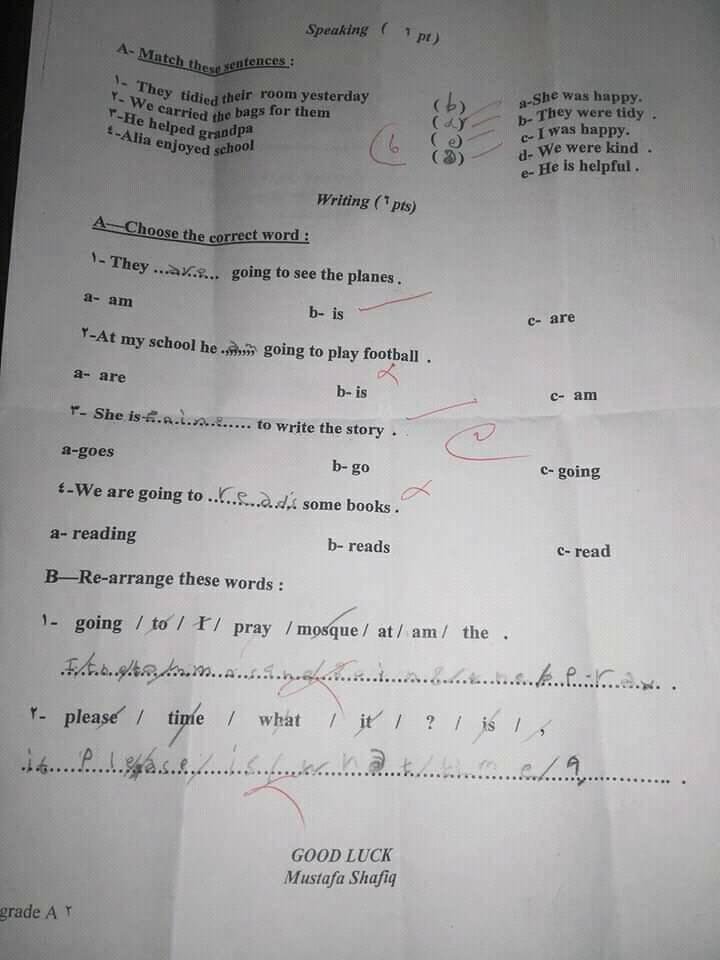 Speaking ( ٦ pt )
A- Match these sentences :
١- They tidied their room yesterday (b) a-She was happy.
٢- We carried the bags for them (d) b- They were tidy .
٣-He helped grandpa (e) c- I was happy.
٤-Alia enjoyed school (a) d- We were kind .
e- He is helpful .
6
Writing (٦ pts)
A—Choose the correct word :
١- They ...are... going to see the planes .
a- am b- is c- are
٢-At my school he ........ going to play football .
a- are b- is c- am
٣- She is ............ to write the story .
a-goes b- go c- going
٤-We are going to ..reads.. some books .
a- reading b- reads c- read
B—Re-arrange these words :
١- going / to / I / pray / mosque / at / am / the .
٢- please / time / what / it / ? / is / ,
it please / is / what / time / ?
GOOD LUCK
Mustafa Shafiq
grade A ٢